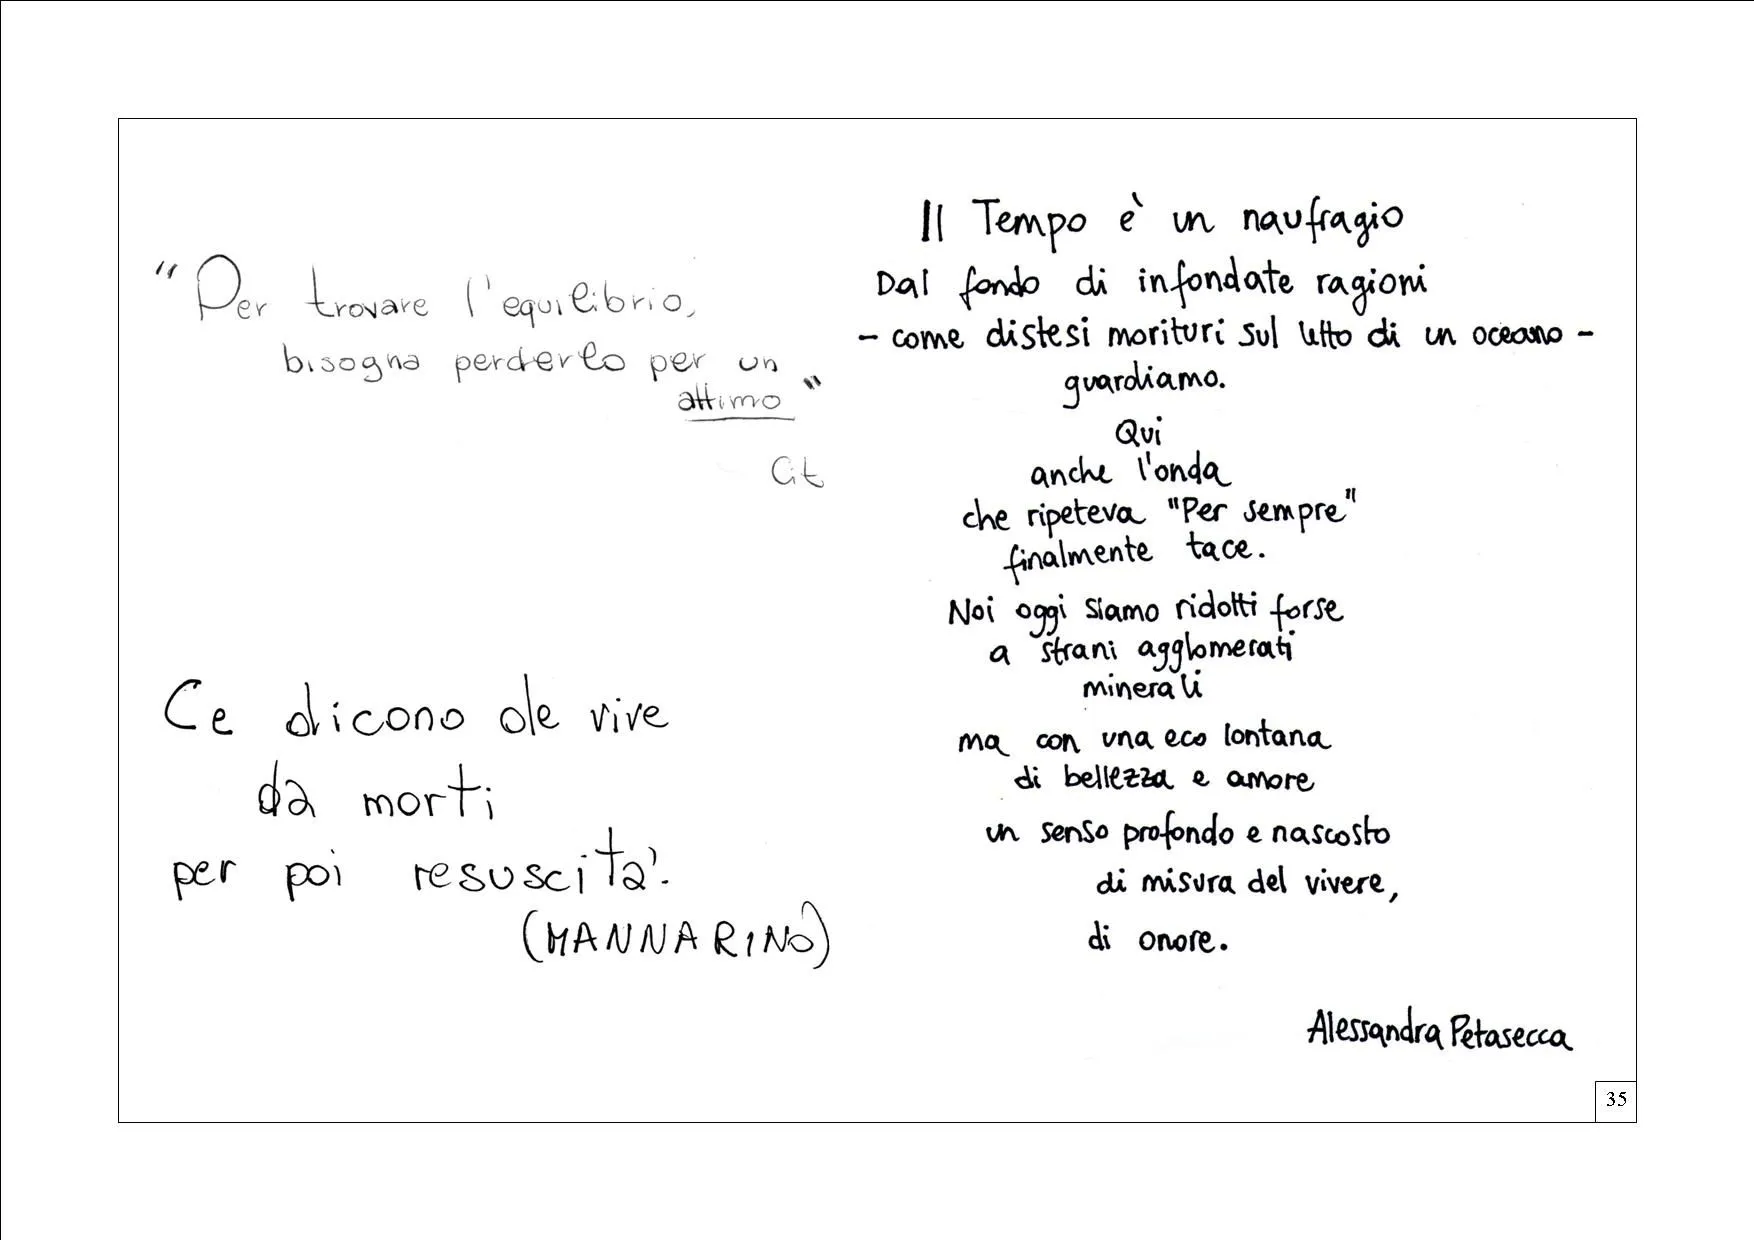 "Per trovare l'equilibrio,
bisogna perderlo per un
attimo"
Cit
Ce dicono de vive
da morti
per poi resuscita'.
(MANNARINO)
Il Tempo è un naufragio
Dal fondo di infondate ragioni
- come distesi morituri sul letto di un oceano -
guardiamo.
Qui
anche l'onda
che ripeteva "Per sempre"
finalmente tace.
Noi oggi siamo ridotti forse
a strani agglomerati
minerali
ma con una eco lontana
di bellezza e amore
un senso profondo e nascosto
di misura del vivere,
di onore.
Alessandra Petasecca
35